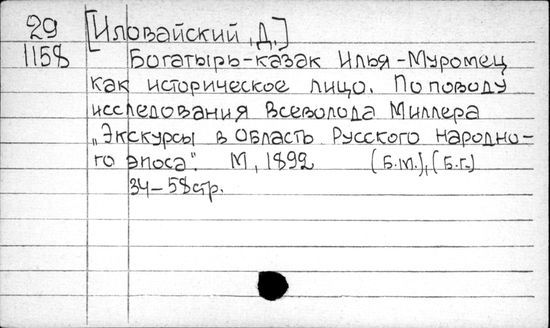 29 [Иловайский, Д.]
1158 Богатырь-казак Илья-Муромец
как историческое лицо. По поводу
исследования Всеволода Миллера
„Экскурсы в область Русского народно-
го эпоса". М, 1892 (Б.м.), (Б.г.)
34-58стр.